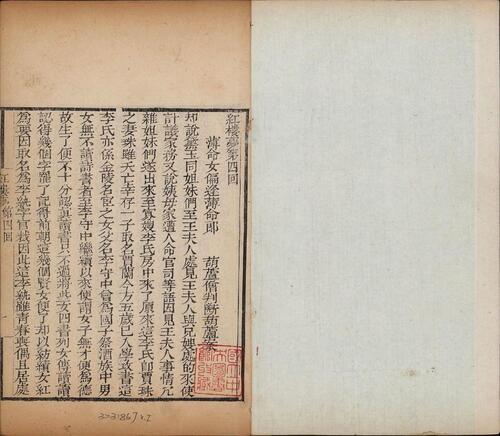 紅樓夢第四回
薄命女偏逢薄命郎 葫蘆僧判斷葫蘆案
却說黛玉同姐妹們至王夫人處見王夫人與兄嫂處的來使
計議家務又說姨母家遭人命官司等語因見王夫人事情冗
雜姐妹們遂出來至寡嫂李氏房中來了原來這李氏卽賈珠
之妻珠雖夭亡幸存一子取名賈蘭今方五歲已入學攻書這
李氏亦係金陵名宦之女父名李守中曾爲國子祭酒族中男
女無不讀詩書者至李守中繼續以來便謂女子無才便爲德
故生了便不十分認真讀書只不過將些女四書列女傳讀讀
認得幾個字罷了記得前朝這幾個賢女便了却以紡績女紅
爲要因取名爲李紈字宮裁因此這李紈雖青春喪偶且居處
紅樓夢第四回
323186 v.2